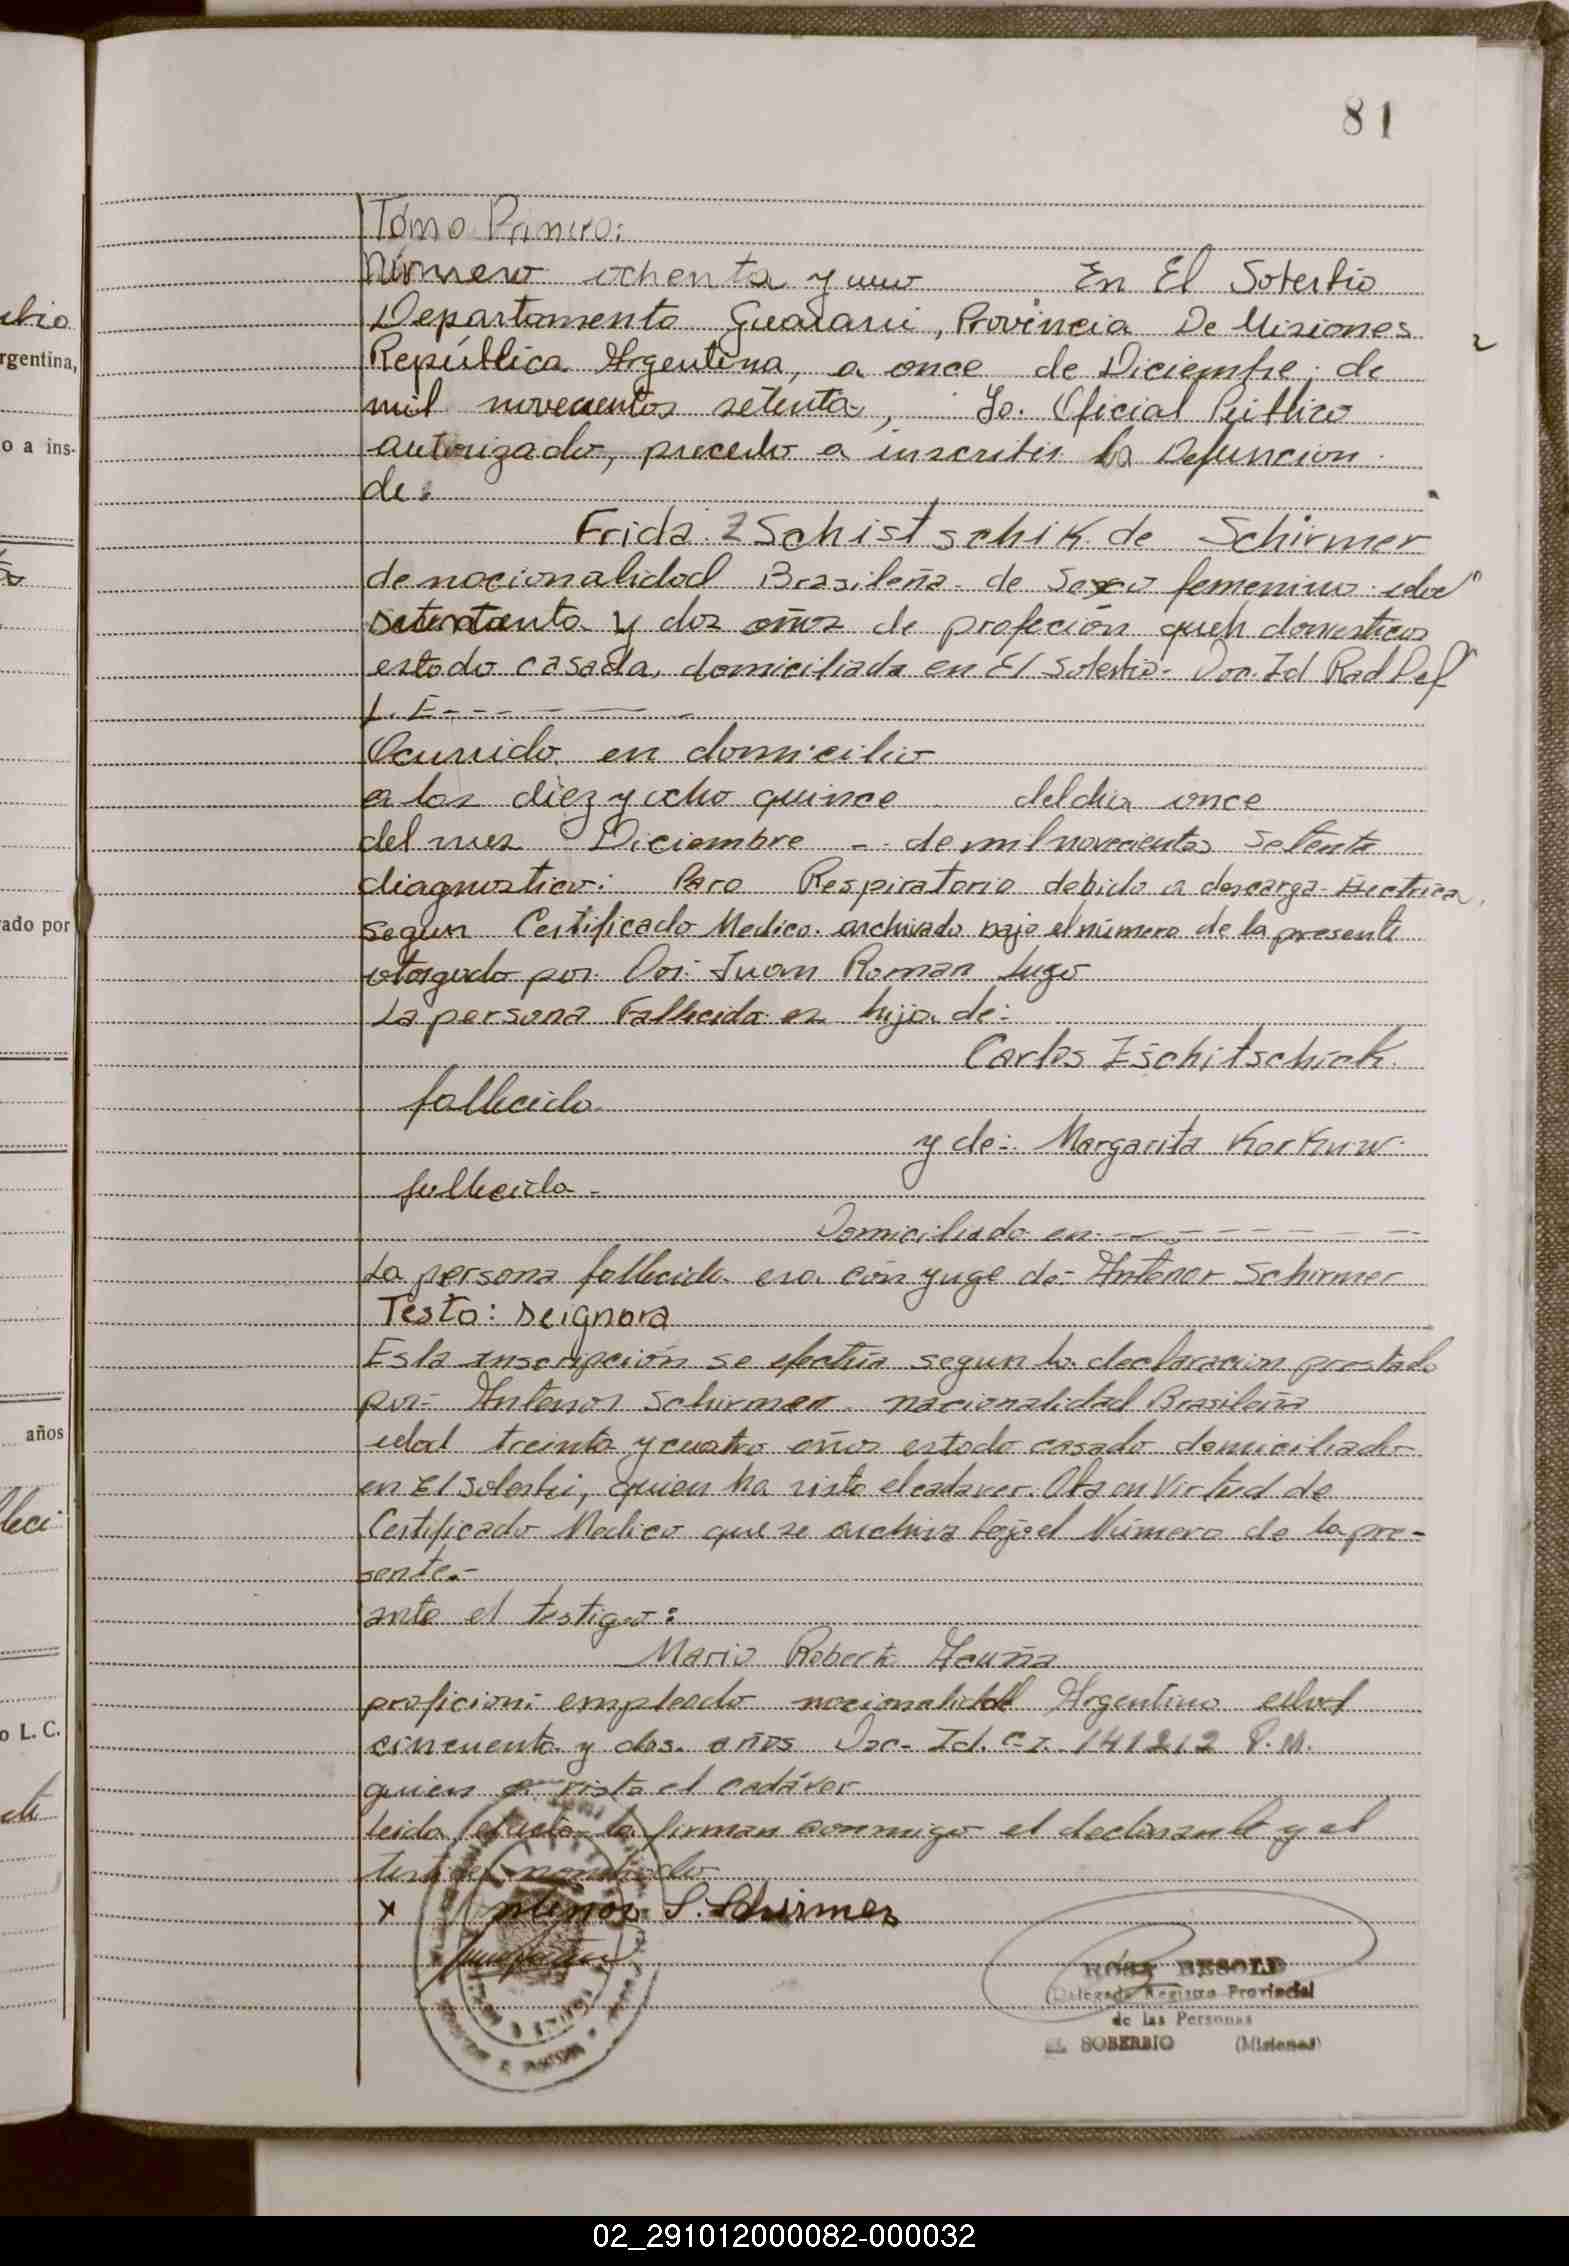 81
Tomo Primero:
Número ochenta y uno En El Soberbio
Departamento Guarani, Provincia De Misiones
República Argentina, a once de Diciembre, de
mil novecientos setenta, Yo. Oficial Público
autorizado, procedo a inscribir la Defuncion
de
Frida ZSchistschik de Schirmer
de nacionalidad Brasileña de Sexo femenino edad
y dos años de profeción domesticos
estado casada, domiciliada en El Soberbio. Doc. Id
L. E - - - - - - -
Ocurrido en domicilio
a las diez y ocho quince del dia once
del mes Diciembre - - de mil novecientos Setenta
diagnostico: Paro Respiratorio debido a descarga Electrica
segun Certificado Medico archivado bajo el número de la presente
otorgado por Dor: Juan Roman Lugo
La persona Fallecida es hija de:
Carlos Zschitschick
fallecido
y de:- Margarita
fallecida -
Domiciliado en - - - - - - -
La persona fallecida era cónyuge de - Antenor Schirmer
Testo: seignora
Esta inscripción se efectúa segun la declaracion prestada
por - Antenor Schirmer nacionalidad Brasileña
edad treinta y cuatro años estado casado domiciliado
en El Soberbio, quien ha visto el cadaver. Obra en Virtud de
Certificado Medico que se archiva bajo el Número de la pre-
sente.-
ante el testigo:
Mario Roberto Acuña
proficion: empleado nacionalidad Argentino edad
cincuenta y dos años Doc. Id. C.I. 141212 P. M.
quien visto el cadáver
Leida el acta la firman conmigo el declarante y el
testigo nombrado
x Antenor S. Schirmer
ROSA BESOLD
Delegada Registro Provincial
de las Personas
EL SOBERBIO (Misiones)
rgentina,
o a ins-
ado por
años
o L. C.
02_291012000082-000032